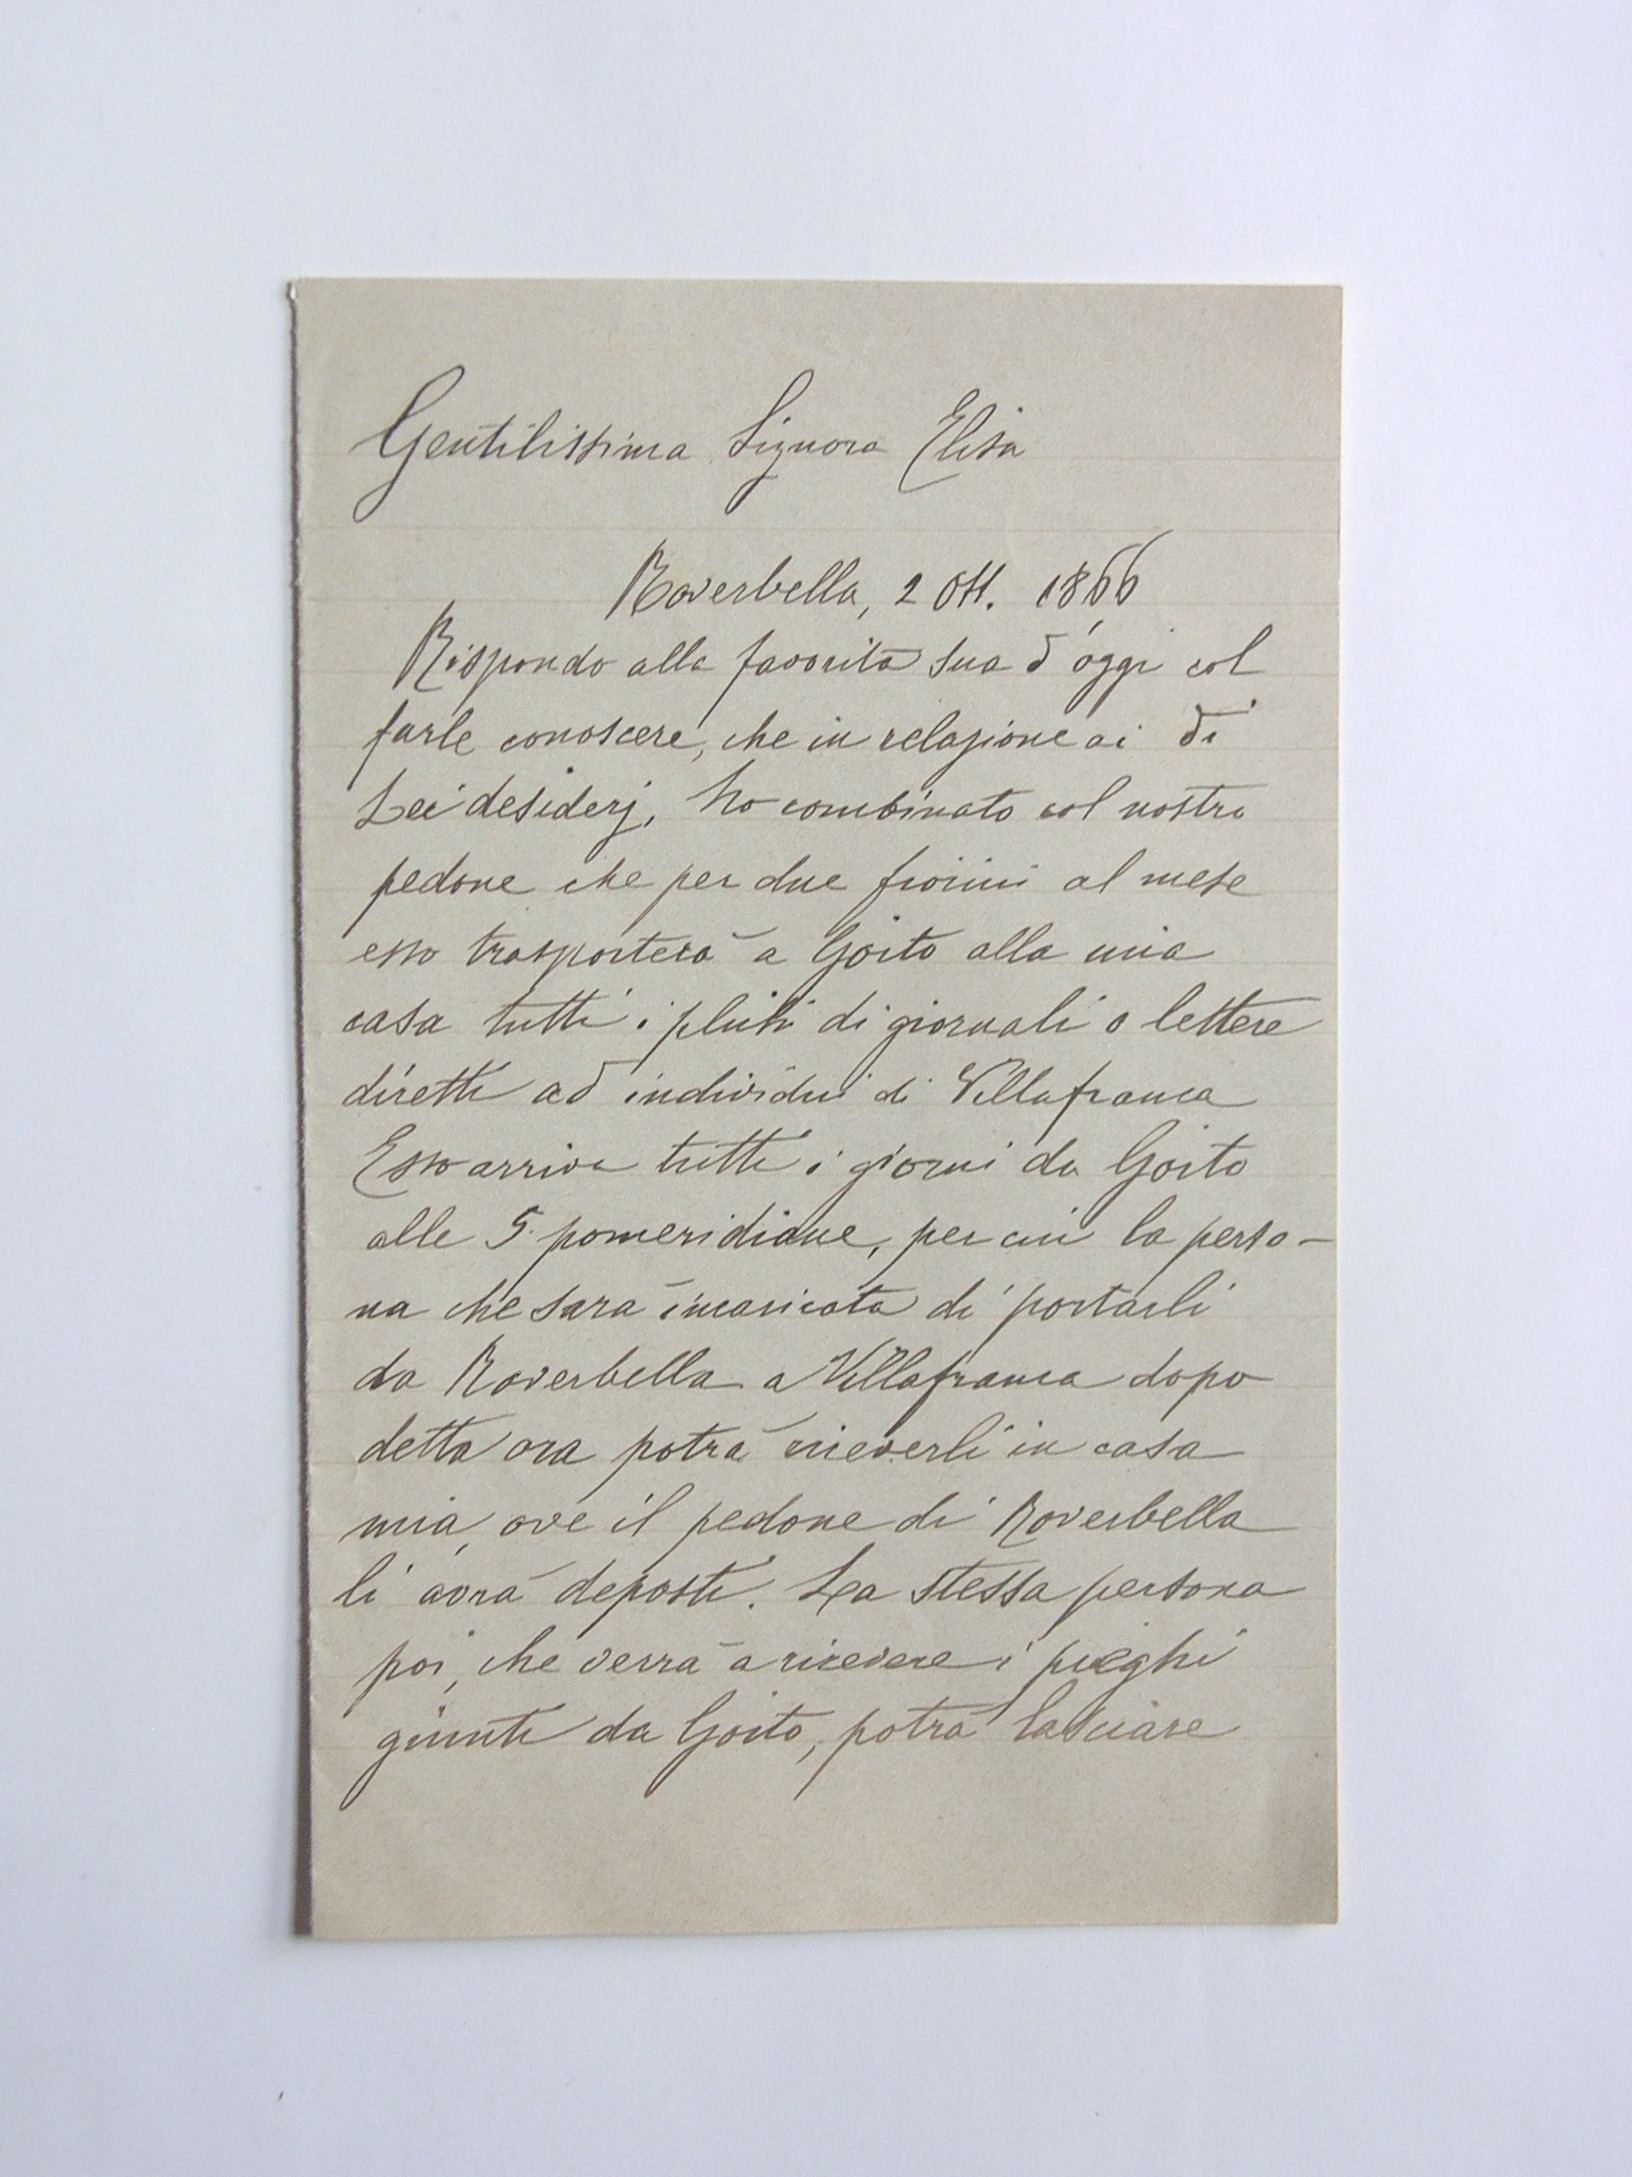 Gentilissima Signora Elisa
Roverbella, 2 Ott. 1866
Rispondo alla favorita sua d'oggi col
farle conoscere, che in relazione ai di
Lei desiderj, ho combinato col nostro
pedone che per due fiorini al mese
esso trasporterà a Goito alla mia
casa tutti i plichi di giornali o lettere
diretti ad individui di Villafranca
Esso arriva tutti i giorni da Goito
alle 5 pomeridiane, per cui la perso-
na che sarà incaricata di portarli
da Roverbella a Villafranca dopo
detta ora potrà riceverli in casa
mia, ove il pedone di Roverbella
li avrà deposti. La stessa persona
poi, che verrà a ricevere i pieghi
giunti da Goito, potrà lasciare